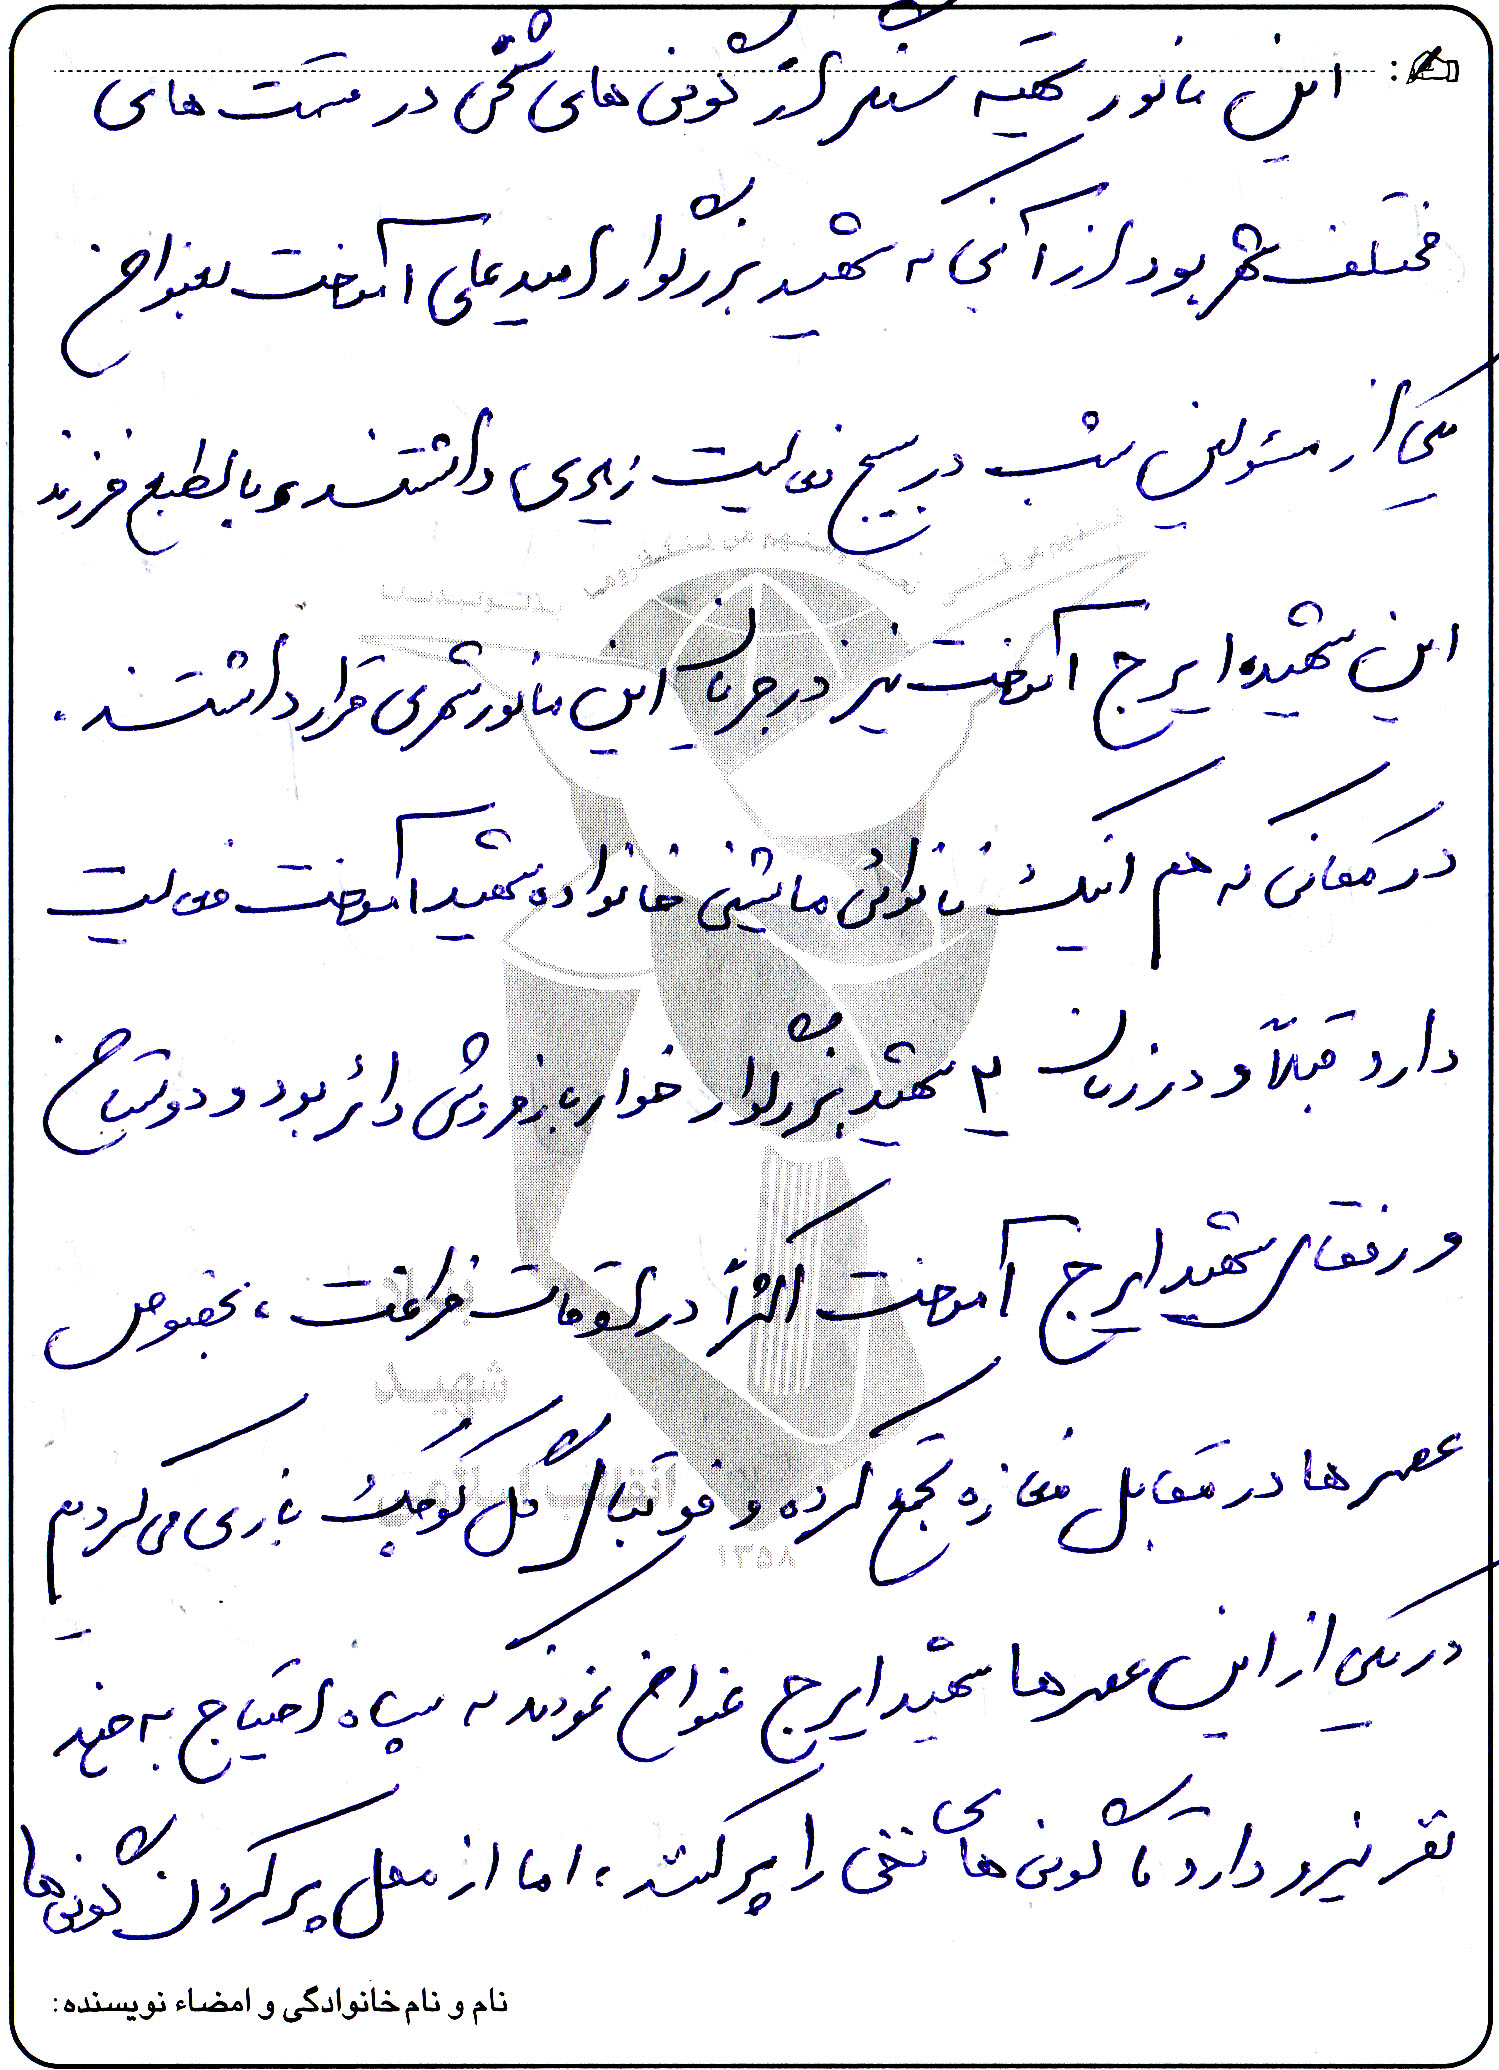 این مانور تهیه سنگر از گونی های شنی در قسمت های
مختلف شهر بود از آنجا که شهید بزرگوار امید علی آموخت بعنوان
یکی از مسئولین شب در بسیج فعالیت زیادی داشتند و بالطبع فرزند
این شهید ایرج آموخت نیز در جریان این مانور شهری قرار داشتند.
در مکانی که هم اینک نانوائی ماشینی خانواده شهید آموخت فعالیت
دارد قبلاً و در زمان ۲ شهید بزرگوار خواربارفروشی دائر بود و دوستان
و رفقای شهید ایرج آموخت اکثراً در اوقات فراغت، بخصوص
عصرها در مقابل مغازه تجمع کرده و فوتبال گل کوچک بازی می کردیم
در یکی از این عصرها شهید ایرج عنوان نمودند که سپاه احتیاج به چند
نفر نیرو دارد تا گونی های نخی را پر کنند، اما از محل پر کردن گونی ها
شهید
انقلاب اسلامی
۱۳۵۸
نام و نام خانوادگی و امضاء نویسنده: